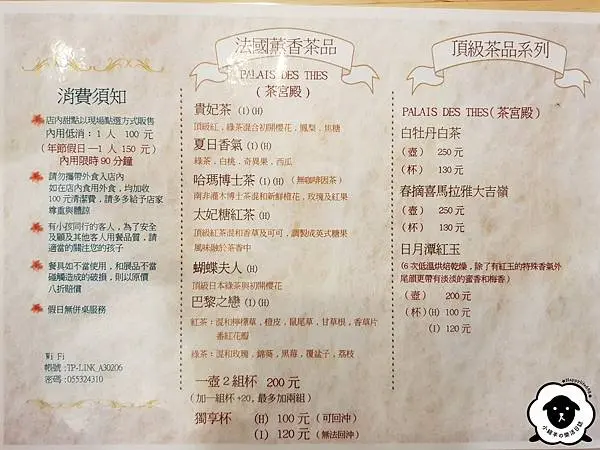 消費須知
店內甜點以現場點選方式販售
內用低消：1 人 100 元
(年節假日一1 人 150 元)
內用限時 90 分鐘
請勿攜帶外食入店內
如在店內食用外食，均加收
100 元清潔費，請多多給予店家
尊重與體諒
有小孩同行的客人，為了安全
及顧及其他客人用餐品質，請
適當的關注您的孩子
餐具如不當使用，和展品不當
碰觸造成的破損，則以原價
八折賠償
假日無併桌服務
Wi Fi
帳號 :TP-LINK_A30206
密碼 : 055324310
法國薰香茶品
PALAIS DES THES
( 茶宮殿 )
貴妃茶 (I) (H)
頂級紅 . 綠茶混合初開櫻花 . 鳳梨 . 焦糖
夏日香氣 (I) (H)
綠茶 . 白桃 . 奇異果 . 西瓜
哈瑪博士茶 (I) (H) ( 無咖啡因茶 )
南非灌木博士茶混和新鮮橙花，玫瑰及紅果
太妃糖紅茶 (H)
頂級紅茶混和香草及可可，調製成英式糖果
風味融於茶香中
蝴蝶夫人 (H)
頂級日本綠茶與初開櫻花
巴黎之戀 (I) (H)
紅茶：混和檸檬草，橙皮，鼠尾草，甘草根，香草片
番紅花瓣
綠茶：混和玫瑰，錦葵，黑莓，覆盆子，荔枝
一壺 2 組杯 200 元
( 加一組杯 +20, 最多加兩組 )
獨享杯 (H) 100 元 ( 可回沖 )
(I) 120 元 ( 無法回沖 )
頂級茶品系列
PALAIS DES THES( 茶宮殿 )
白牡丹白茶
( 壺 ) 250 元
( 杯 ) 130 元
春摘喜馬拉雅大吉嶺
( 壺 ) 250 元
( 杯 ) 130 元
日月潭紅玉
(6 次低溫烘焙乾燥，除了有紅玉的特殊香氣外
尾韻更帶有淡淡的蜜香和梅香)
( 壺 ) 200 元
( 杯 )(H) 100 元
(I) 120 元